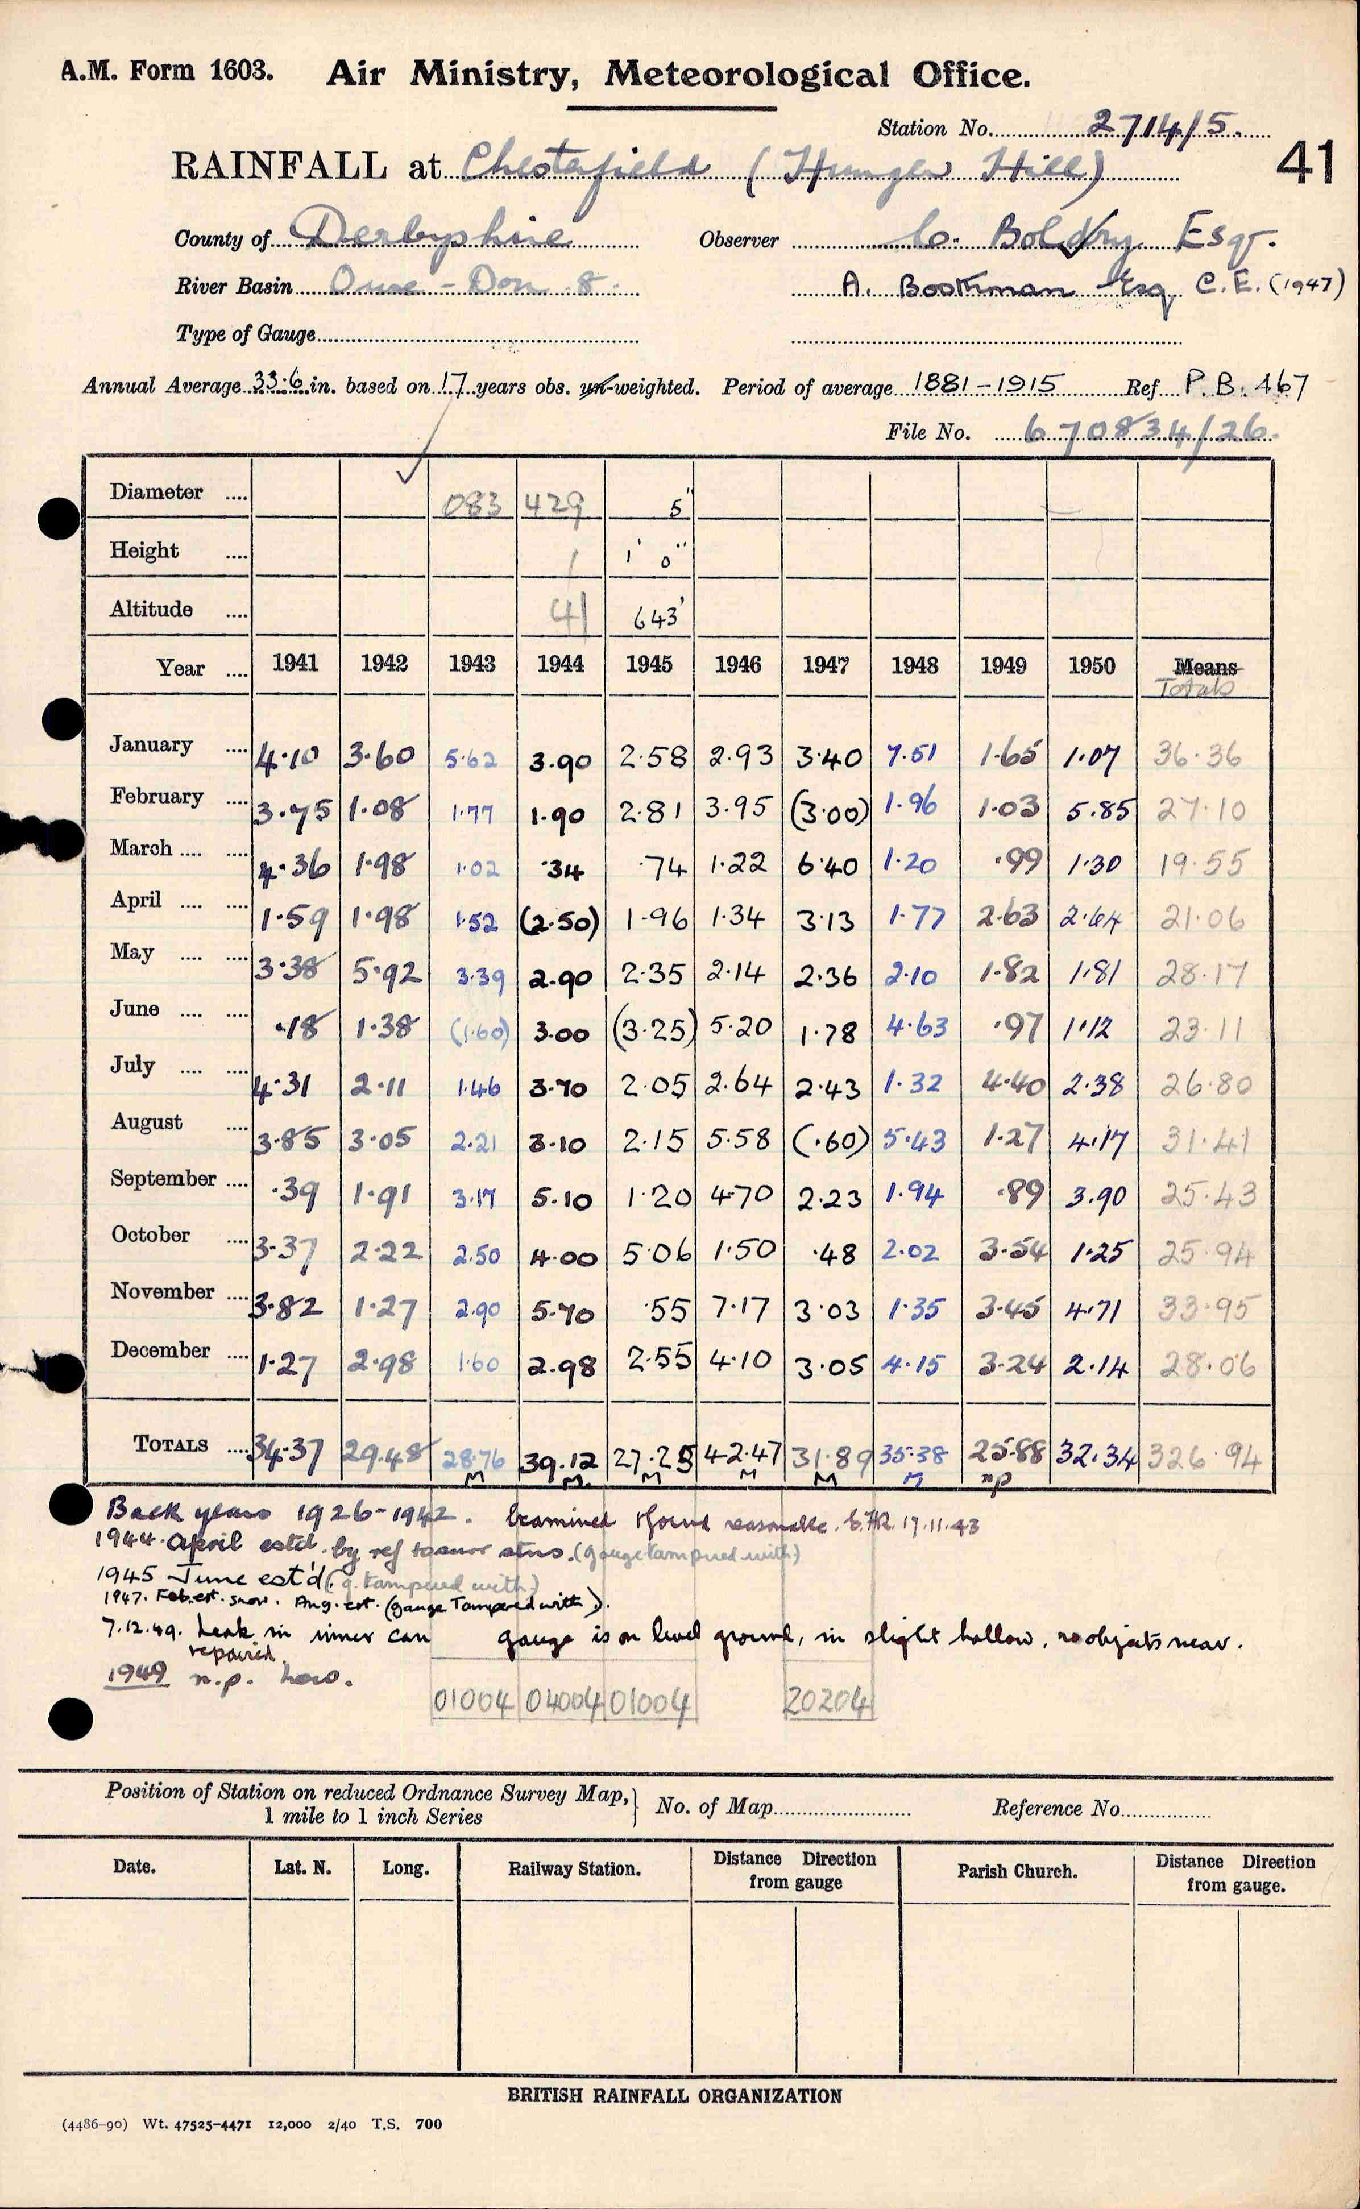 A.M. Form 1603. Air Ministry, Meteorological Office.
Station No. 2714/5.
41
RAINFALL at Chesterfield (Hunger Hill)
County of Derbyshire Observer Esq.
River Basin Ouse - Don 8. A. Boothman Esq C.E. (1947)
Type of Gauge
Annual Average 33.6 in. based on 17 years obs. un-weighted. Period of average 1881-1915 Ref P.B. 467
File No. 670834/26.
Diameter .... 083 429 5"
Height .... 1' 0"
Altitude .... 41 643'
Year .... 1941 1942 1943 1944 1945 1946 1947 1948 1949 1950 Means Totals
January .... 4.10 3.60 5.62 3.90 2.58 2.93 3.40 7.51 1.65 1.07 36.36
February .... 3.75 1.08 1.77 1.90 2.81 3.95 (3.00) 1.96 1.03 5.85 27.10
March .... .... 4.36 1.98 1.02 .34 .74 1.22 6.40 1.20 .99 1.30 19.55
April .... .... 1.59 1.98 1.52 (2.50) 1.96 1.34 3.13 1.77 2.63 2.64 21.06
May .... .... 3.38 5.92 3.39 2.90 2.35 2.14 2.36 2.10 1.82 1.81 28.17
June .... .... .18 1.38 (1.60) 3.00 (3.25) 5.20 1.78 4.63 .97 1.12 23.11
July .... .... 4.31 2.11 1.46 3.70 2.05 2.64 2.43 1.32 4.40 2.38 26.80
August .... 3.85 3.05 2.21 3.10 2.15 5.58 (.60) 5.43 1.27 4.17 31.41
September .... .39 1.91 3.17 5.10 1.20 4.70 2.23 1.94 .89 3.90 25.43
October .... 3.37 2.22 2.50 4.00 5.06 1.50 .48 2.02 3.54 1.25 25.94
November .... 3.82 1.27 2.90 5.70 .55 7.17 3.03 1.35 3.45 4.71 33.95
December .... 1.27 2.98 1.60 2.98 2.55 4.10 3.05 4.15 3.24 2.14 28.06
TOTALS .... 34.37 29.48 28.76 39.12 27.25 42.47 31.89 35.38 25.88 32.34 326.94
M M. M M M M np
Back years 1926-1942. Examined & found reasonable. 17.11.43
1944. April estd. by ref to surr stns. (gauge tampered with)
1945 June est'd. (g. tampered with)
1947. Feb. est. snow. Aug. est. (gauge Tampered with).
7.12.49. Leak in inner can repaired. gauge is on level ground, in slight hollow, no objects near.
1949 n.p. low.
01004 04004 01004 20204
Position of Station on reduced Ordnance Survey Map, 1 mile to 1 inch Series } No. of Map Reference No.
Date. Lat. N. Long. Railway Station. Distance Direction from gauge Parish Church. Distance Direction from gauge.
BRITISH RAINFALL ORGANIZATION
(4486-90) Wt. 47525-4471 12,000 2/40 T.S. 700